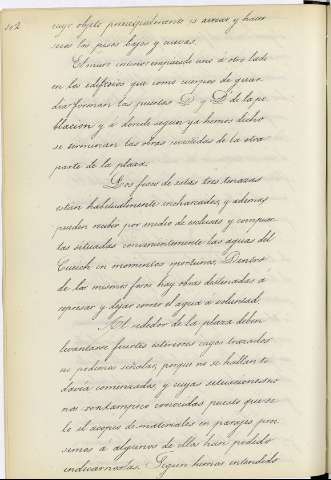 cuyo objeto principalmente es airear y hacer
secas los pisos bajos y cuevas.
El muro mismo enganche uno á otro lado
en los edificios que como cuerpos de guar-
dia forman las puertas D y D' de la po-
blacion y á donde segun ya hemos dicho
se terminan las obras revestidas de la otra
parte de la plaza.
Los fosos de estas tres tenazas
estan habitualmente encharcados, y ademas
pueden recibir por medio de esclusas y compuer-
tas situadas convenientemente las aguas del
Queich en momentos oportunos. Dentro
de los mismos fosos hay obras destinadas á
represar y dejar correr el agua á voluntad.
Al rededor de la plaza deben
levantarse fuertes esteriores cuyos trazados
no podemos señalar, porque no se hallan to-
davia comenzados y cuyas situaciones no
nos son tampoco conocidas puesto que so-
lo el acopio de materiales en parajes proc-
simos á algunos de ellos han podido
indicarnoslas. Segun hemos entendido